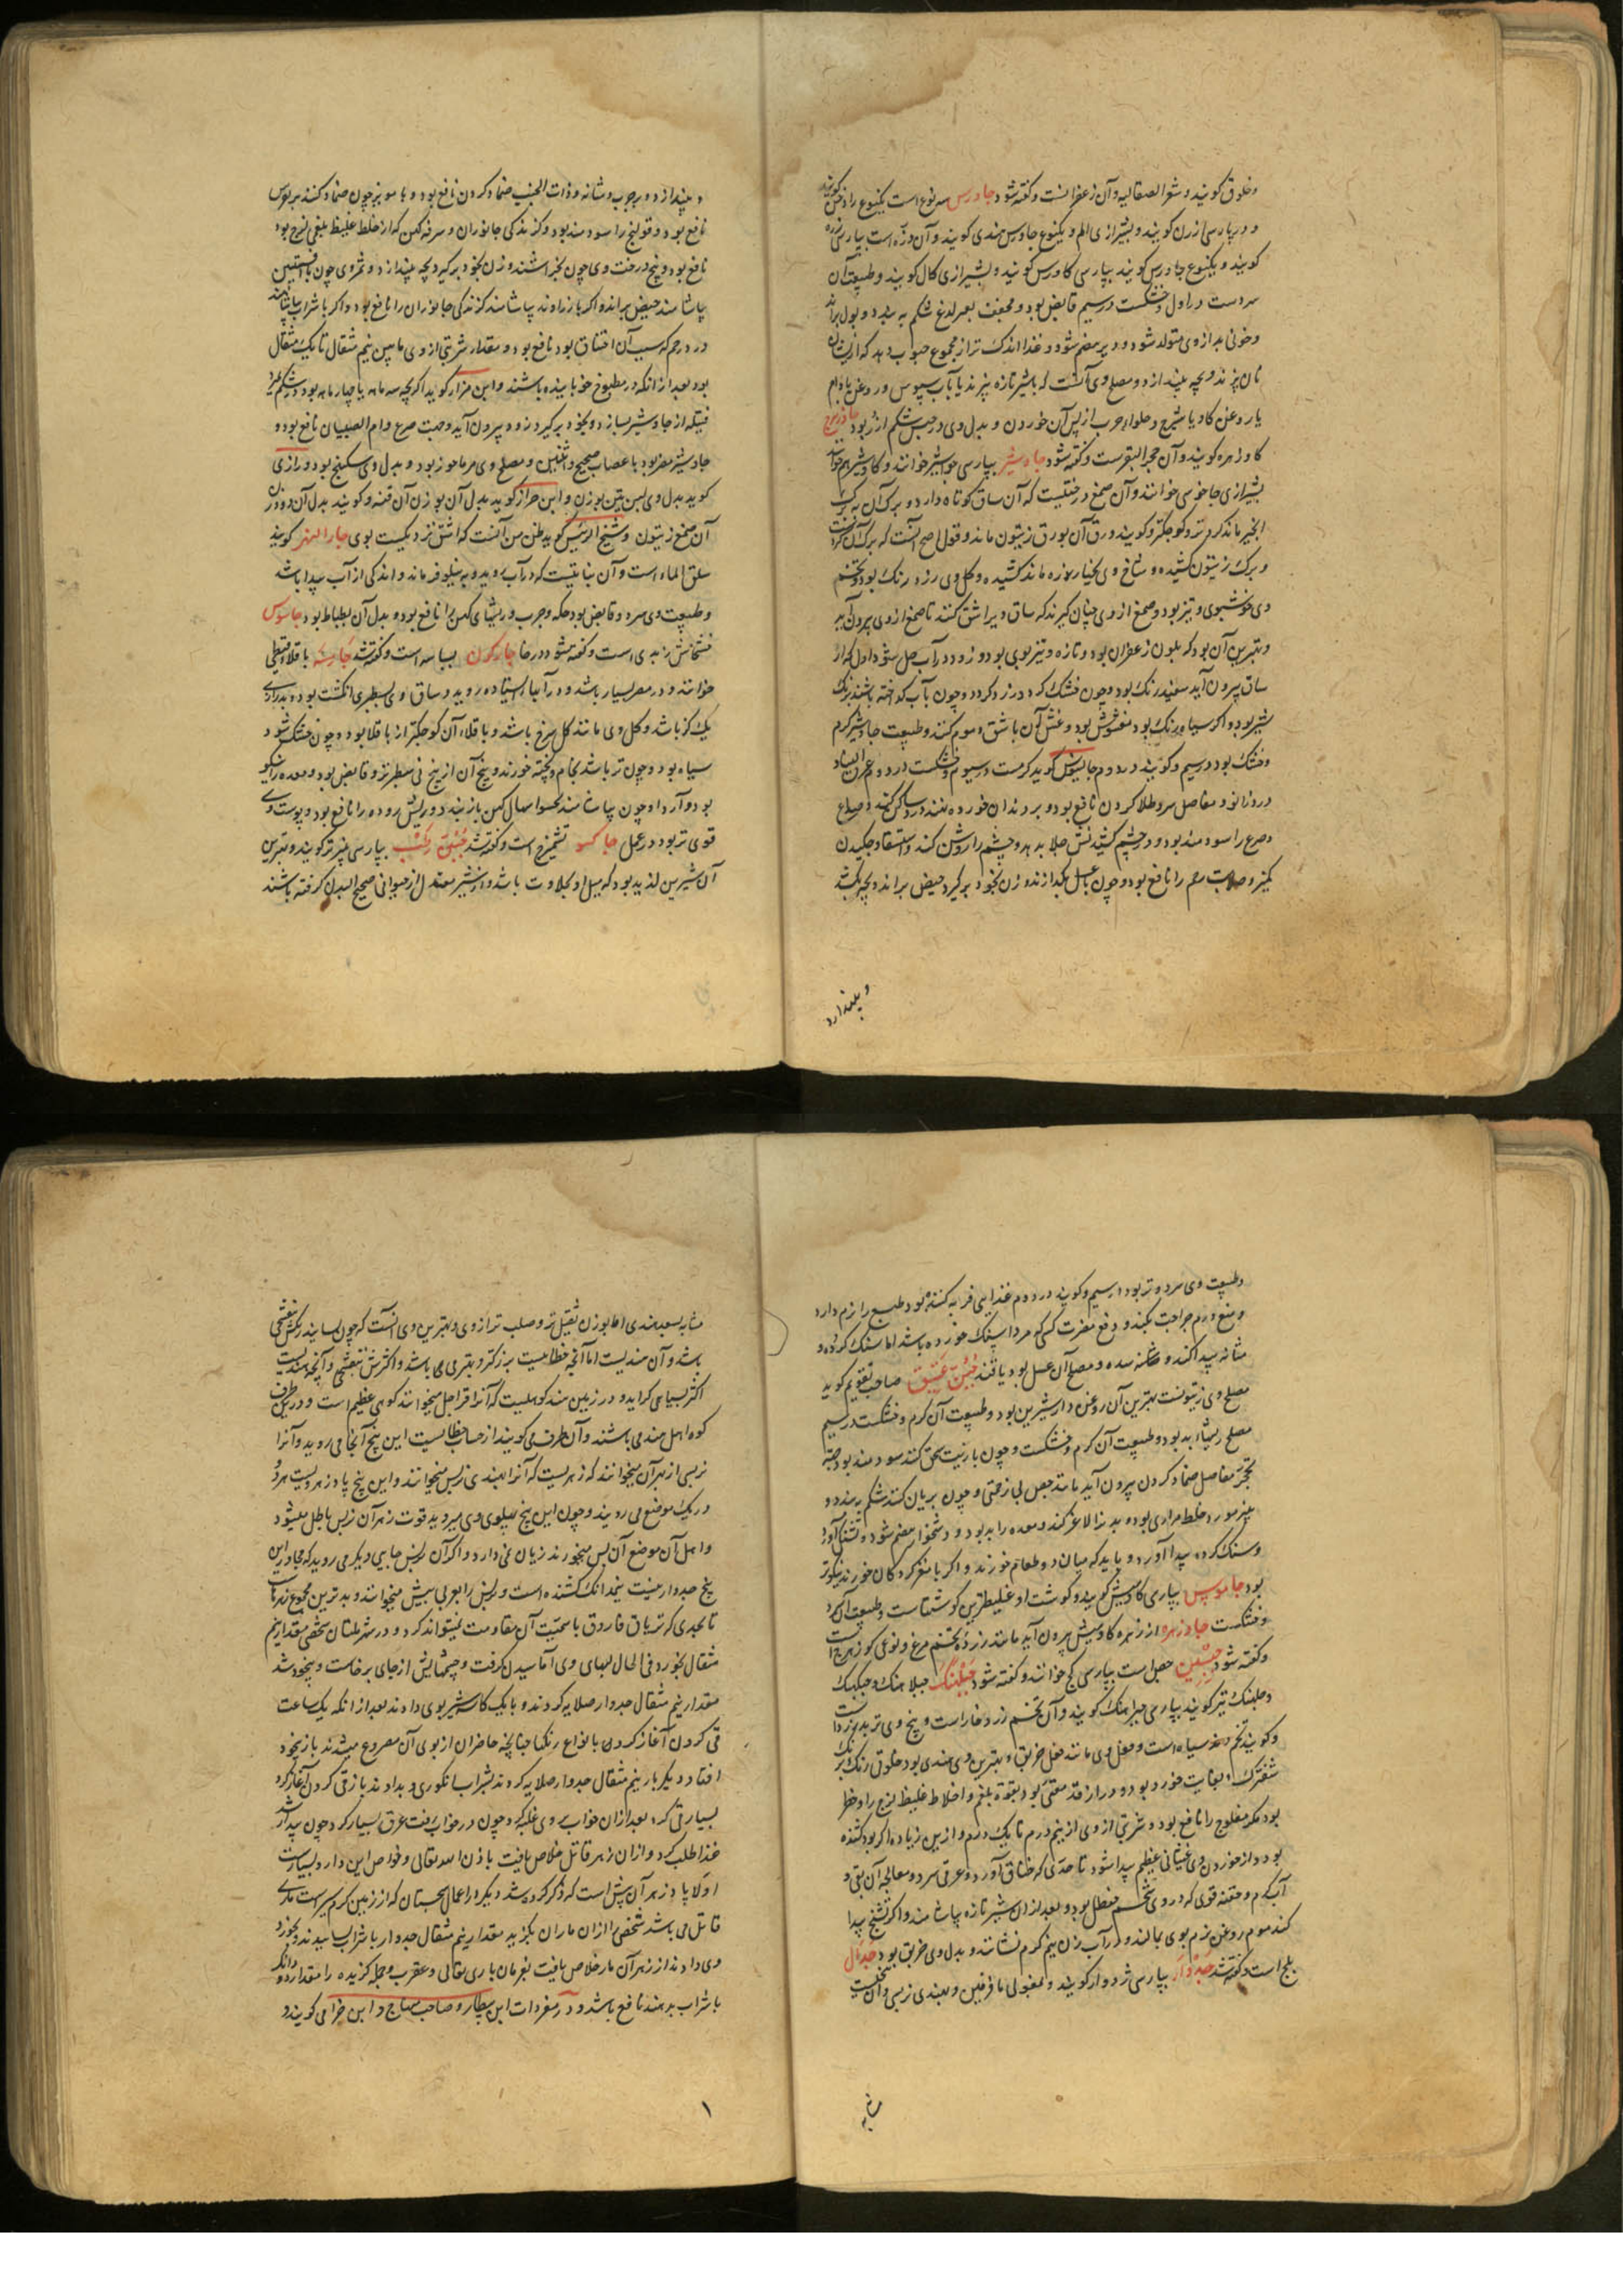 وخلوق کویند و شعرالصقالیه وآن زعفرانست وکفته شود جاورس سه نوع است یکنوع را دخن کویند
و در پارسی ارزن کویند و بشیرازی الم و یکنوع جاورس هندی کویند وآن ذره است بپارسی
کویند و یکنوع جاورس کویند بپارسی کاورس کویند و بشیرازی کال کویند و طبیعت آن
سردست در اول و خشکست در سیم قابض بود و مجفف بغیر لذع شکم به بندد و بول براند
وخونی بد از وی متولد شود و دیر هضم شود و غذا اندک تر از مجموع حبوب دهد که از ایشان
نان پزند و بچه بیندازد و مصلح وی آنست که باشیر تازه پزند یا بآب سبوس و روغن بادام
یا روغن کاو یا شیرج و حلواء چرب از پس آن خوردن و بدل وی در حبس شکم ارز بود جاوزهرج
کاو زهره کویند وآن حجرالبقرست وکفته شود جاوشیر بپارسی جواشیر خوانند و کاوشیر هم خوانند
بشیرازی جاخوسی خوانند وآن صمغ درختیست که آن ساق کوتاه دارد و برک آن به برک
انجیر ماند کردتر و کوچکتر و کویند ورق آن بورق زیتون ماند و قول اصح آنست که برک آن
و برک زیتون کشیده و شاخ وی بخیار موزه ماند کشیده و کل وی زرد رنک بود و تخم
وی خوشبوی و تیز بود و صمغ از وی چنان کیرند که ساق ویرا شق کنند تا صمغ از وی بیرون آید
و بهترین آن بود که بلون زعفران بود و تازه و تیز بوی بود و زود در آب حل شود اول که از
ساق بیرون آید سفید رنک بود و چون خشک کردد زرد کردد و چون بآب کداخته باشند برنک
شیر بود و اکر سیاه رنک بود مغشوش بود و غش آن باشق و موم کنند و طبیعت جاوشیر کرم
وخشک بود در سیم وکویند در دوم جالینوس کوید کرمست در سیوم وخشکست در دوم عرق النساء
و درد زانو و مفاصل سرد طلا کردن نافع بود و بر دندان خورده نهند درد ساکن کند و صداع
و صرع را سودمند بود و در چشم کشیدنش جلا بدهد و چشم را روشن کند و استسقا و چکیدن
کمیز و صلابت رحم را نافع بود و چون باعسل بکدازند و زن بخود برکیرد حیض براند و بچه بکشد
و بیندازد
و بیندازد و بر جرب و شانه و ذات الجنب ضماد کردن نافع بود و با مویز چون ضماد کنند بر نقرس
نافع بود و قولنج را سودمند بود و کزندکی جانوران و سرفه کهن که از خلط غلیظ بلغمی لزج بود
نافع بود و بیخ درخت وی چون بخراشند و زن بخود برکیرد بچه بیندازد و ثمر وی چون با افسنتین
بیاشامند حیض براند و اکر با زراوند بیاشامند کزندکی جانوران را نافع بود و اکر باشراب بیاشامند
درد رحم که سبب آن اختناق بود نافع بود و مقدار شربتی از وی مابین نیم مثقال تا یک مثقال
بود بعد از آنکه در مطبوخ خوابانیده باشند و ابن هزار کوید اکر بچه سه ماهه یا چهار ماهه بود در شکم
فتیله از جاوشیر بسازد و بخود برکیرد زود بیرون آید و جهت صرع و ام الصبیان نافع بود و
جاوشیر مضر بود باعصاب صحیح و انثیین و مصلح وی مرماحوز بود و بدل وی سکبینج بود و رازی
کوید بدل وی لبن تین بوزن و ابن جزار کوید بدل آن بوزن آن قنه و کویند بدل آن دو وزن
آن صمغ زیتون و شیخ الرئیس کوید ظن من آنست که اشق نزدیکست بوی جارالنهر کویند
سلق الماء است وآن نباتیست که در آب روید و به نیلوفر ماند و اندکی از آب پیدا باشد
و طبیعت وی سرد و قابض بود حکه و جرب و ریشهای کهن را نافع بود و بدل آن بطباط بود جاسوس
خشخاش زبدی است وکفته شود در خا جارکون بسباسه است وکفته شد جارمشه باقلاء قبطی
خوانند و در مصر بسیار باشد و در آبها ایستاده روید و ساق او بسطبری انکشت بود و بدرازی
یک کز باشد و کل وی مانند کل سرخ باشد و باقلاء آن کوچکتر از باقلا بود و چون خشک شود
سیاه بود و چون تر باشد بخام و پخته خورند و بیخ آن از بیخ نی سطبرتر و قابض بود و معده را نیکو
بود و آرد او چون بیاشامند کحسو اسهال کهن باز بندد و ریش روده را نافع بود و پوست وی
قوی تر بود در عمل جاکسو تشمیزج است وکفته شد جبن رطب بپارسی پنیر تر کویند و بهترین
آن شیرین لذیذ بود که میل او بحلاوت باشد و از شیر معتدل از حیوانی صحیح البدن کرفته باشند
و طبیعت وی سرد و تر بود در سیم و کویند در دوم غذایی فربه کننده بود و طبع را نرم دارد
و منع ورم جراحت بکند و دفع مضرت کسی که مردا سنک خورده باشد اما سنک کرده و
مثانه پیدا کند و مصلح آن عسل بود یا قند جبن عتیق صاحب تقویم کوید
مصلح وی زیتونست بهترین آن روغن دار شیرین بود و طبیعت آن کرم وخشکست در سیم
مصلح ریشهاء بد بود و طبیعت آن کرم وخشکست و چون با زیت سحق کنند سودمند بود جهة
تحجر مفاصل ضماد کردن بیرون آید مانند جص بی زحمتی و چون بریان کنند شکم به بندد و
پنیر مورد خلط مراری بود و بدن را لاغر کند و معده را بد بود و دشخوار هضم شود و تشنکی آورد
و سنک کرده پیدا آورد و باید که میان دو طعام خورند و اکر با مغز کردکان خورند نیکوتر
بود جاموس بپارسی کاومیش کویند و کوشت او غلیظترین کوشتهاست و طبیعت آن سرد
و خشکست جاوزهره از زهره کاومیش بیرون آید مانند زرده تخم مرغ و نوعی کوزهرج است
وکفته شود جبسین جص است بپارسی کچ خوانند وکفته شود جبلهنک جبلاهنک و جبکنک
و جلهنک نیز کویند بپارسی جبراهنک کویند وآن تخم زرد خار است و بیخ وی تربد زرد است
وکویند تخم دند سیاه است و فعل وی مانند فعل خربق و بهترین وی هندی بود خلوق رنک برنک
شفترک و بغایت خورد بود و دراز قد مقئ بود بقوة بلغم و اخلاط غلیظ لزج را و خطر
بود مکر مفلوج را نافع بود و شربتی از وی از نیم درم تا یک درم و از این زیاده اکر بود کشنده
بود و از خوردن وی غثیانی عظیم پیدا شود تا حدی که خناق آورد و عرقی سرد و معالجه آن بقی و
آب کرم و حقنه قوی که در وی شحم حنظل بود و بعد از آن شیر تازه بیاشامند و اکر تشنج پیدا
کند موم روغن نرم بوی بمالند و در آب زن نیم کرم نشانند و بدل وی خربق بود جدال
بلح است وکفته شد جدوار بپارسی ژدوار کویند و بمغولی مافرفین و بهندی نربسی وآن بیخیست
مشابه
مشابه بسعد هندی اما بوزن ثقیل تر و صلب تر از وی و بهترین وی آنست که چون بسایند رنکش بنفشی
باشد وآن هندیست اما آنچه خطاییست بزرکتر و بهتر می باشد و اکثرش بنفشی و آنچه هندیست
اکثر بسیاهی کراید و در زمین هند کوهیست که آنرا قراجل میخوانند کوهی عظیم است و در یکطرف
کوه اهل هند می باشند و آن طرف می کویند از حساب خطاییست این بیخ آنجا می روید و آنرا
نربسی از بهر آن میخوانند که زهریست که آنرا بهندی بس میخوانند و این بیخ پادزهر ویست هر دو
در یک موضع می رویند و چون این بیخ بپهلوی وی میروید قوت زهر آن بس باطل میشود
و اهل آن موضع آن بس میخورند زیان نمی دارد و اکر آن بس جایی دیکر می روید که مجاور این
بیخ جدوار نیست بیخ دانک کشنده است و بس را بعربی بیش میخوانند و بدترین مجموع زهرهاست
تا بحدی که تریاق فاروق با سمیت آن مقاومت نمیتواند کرد و در شهر ملتان شخصی مقدار نیم
مثقال بخورد فی الحال لبهای وی آماسیدن کرفت و چشمهایش از جای برخاست و بیخود شد
مقدار نیم مثقال جدوار صلایه کردند و با یک کاسه شیر بوی دادند بعد از آنکه یک ساعت
قی کردن آغاز کرد بانواع رنکها چنانچه حاضران از بوی آن مصروع میشدند باز بیخود
افتاد دیکر بار نیم مثقال جدوار صلایه کردند بشراب انکوری و بدادند باز قی کردن آغاز کرد
بسیار قی کرد بعد از آن خواب بر وی غلبه کرد و چون در خواب رفت عرق بسیار کرد چون بیدار شد
غذا طلب کرد و از آن زهر قاتل خلاص یافت باذن الله تعالی و خواص این دارو بسیارست
اولا پادزهر آن بیش است که ذکر کرده شد دیکر در اعمال سجستان که از زمین کرم سیر است ماری
قاتل می باشد شخصی را از آن ماران بکزید مقدار نیم مثقال جدوار با شراب ساییدند و بخورد
وی دادند از زهر آن مار خلاص یافت بفرمان باری تعالی و عقرب و جمله کزیده را مقدار دو دانک
باشراب بدهند نافع باشد و در مفردات ابن بیطار و صاحب منهاج و ابن جزار می کویند
۱